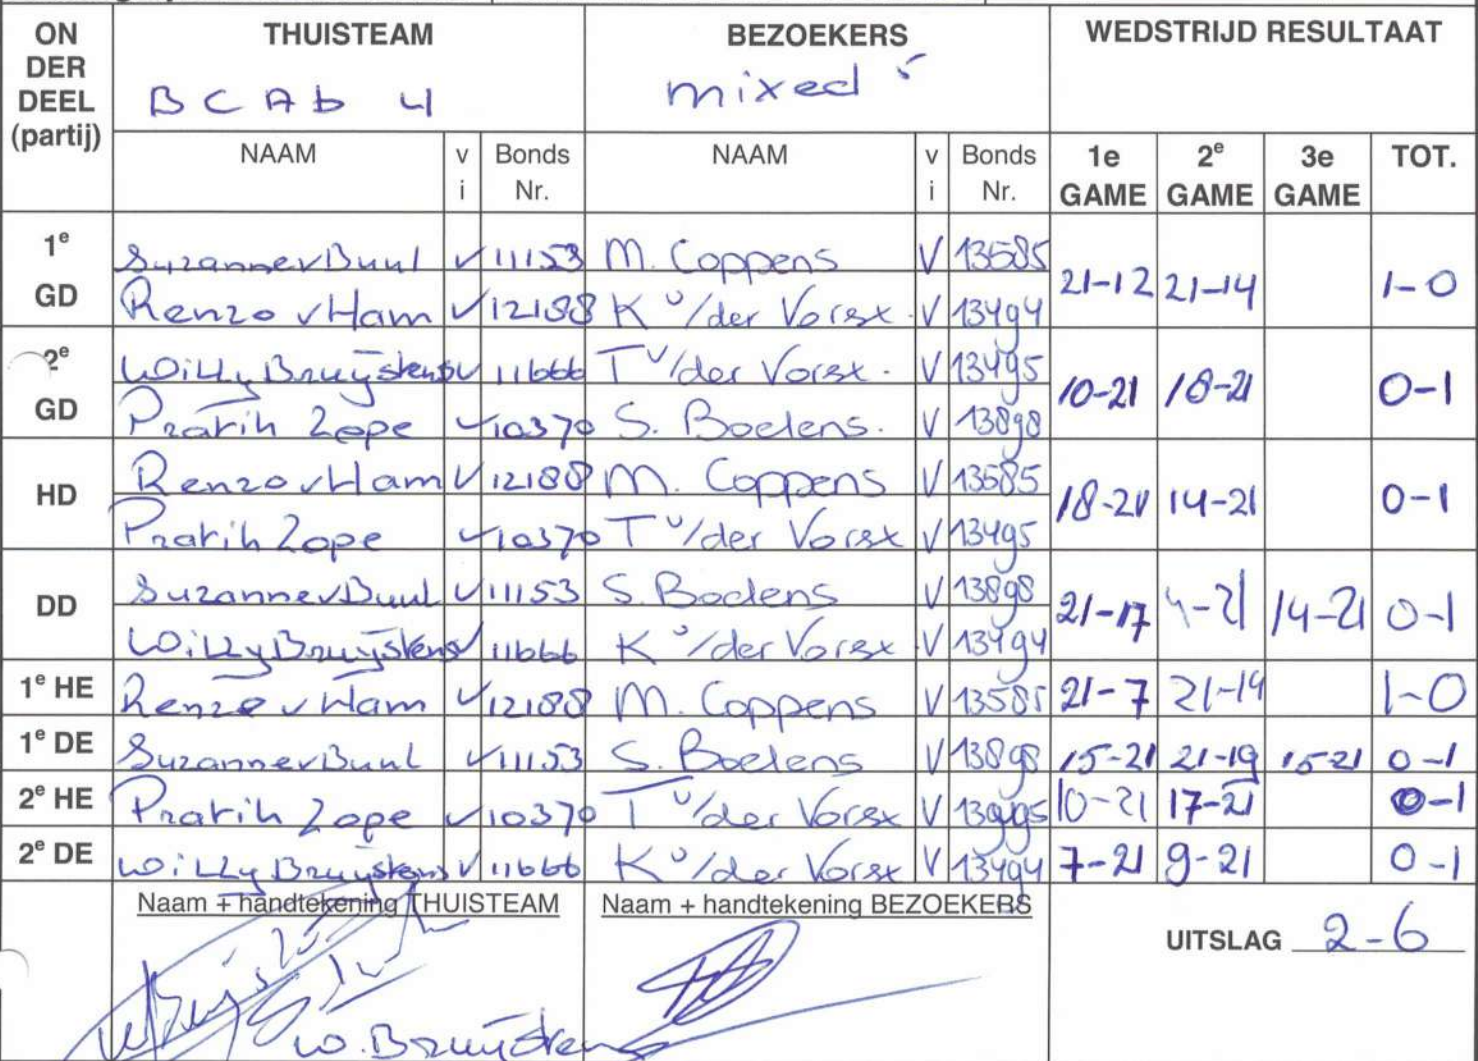 ON DER DEEL (partij) THUISTEAM BEZOEKERS WEDSTRIJD RESULTAAT
BCAb 4 mixed 5
NAAM vi Bonds Nr. NAAM vi Bonds Nr. 1e GAME 2e GAME 3e GAME TOT.
1e GD Suzanne v Buul v 11153 M. Coppens V 13585 21-12 21-14 1-0
Renzo v Ham v 12188 K v/der Vorst. V 13494
2e GD Willy Bruijstens v 11666 T v/der Vorst. V 13495 10-21 18-21 0-1
Pratih Zope v 10370 S. Boelens. V 13898
HD Renzo v Ham v 12188 M. Coppens V 13585 18-21 14-21 0-1
Pratih Zope v 10370 T v/der Vorst V 13495
DD Suzanne v Buul v 11153 S. Boelens V 13898 21-17 4-21 14-21 0-1
Willy Bruijstens v 11666 K v/der Vorst. V 13494
1e HE Renzo v Ham v 12188 M. Coppens V 13585 21-7 21-19 1-0
1e DE Suzanne v Buul v 11153 S. Boelens V 13898 15-21 21-19 15-21 0-1
2e HE Pratih Zope v 10370 T v/der Vorst V 13495 10-21 17-21 0-1
2e DE Willy Bruijstens v 11666 K v/der Vorst V 13494 7-21 9-21 0-1
Naam + handtekening THUISTEAM Naam + handtekening BEZOEKERS
UITSLAG 2-6
W. Bruijstens